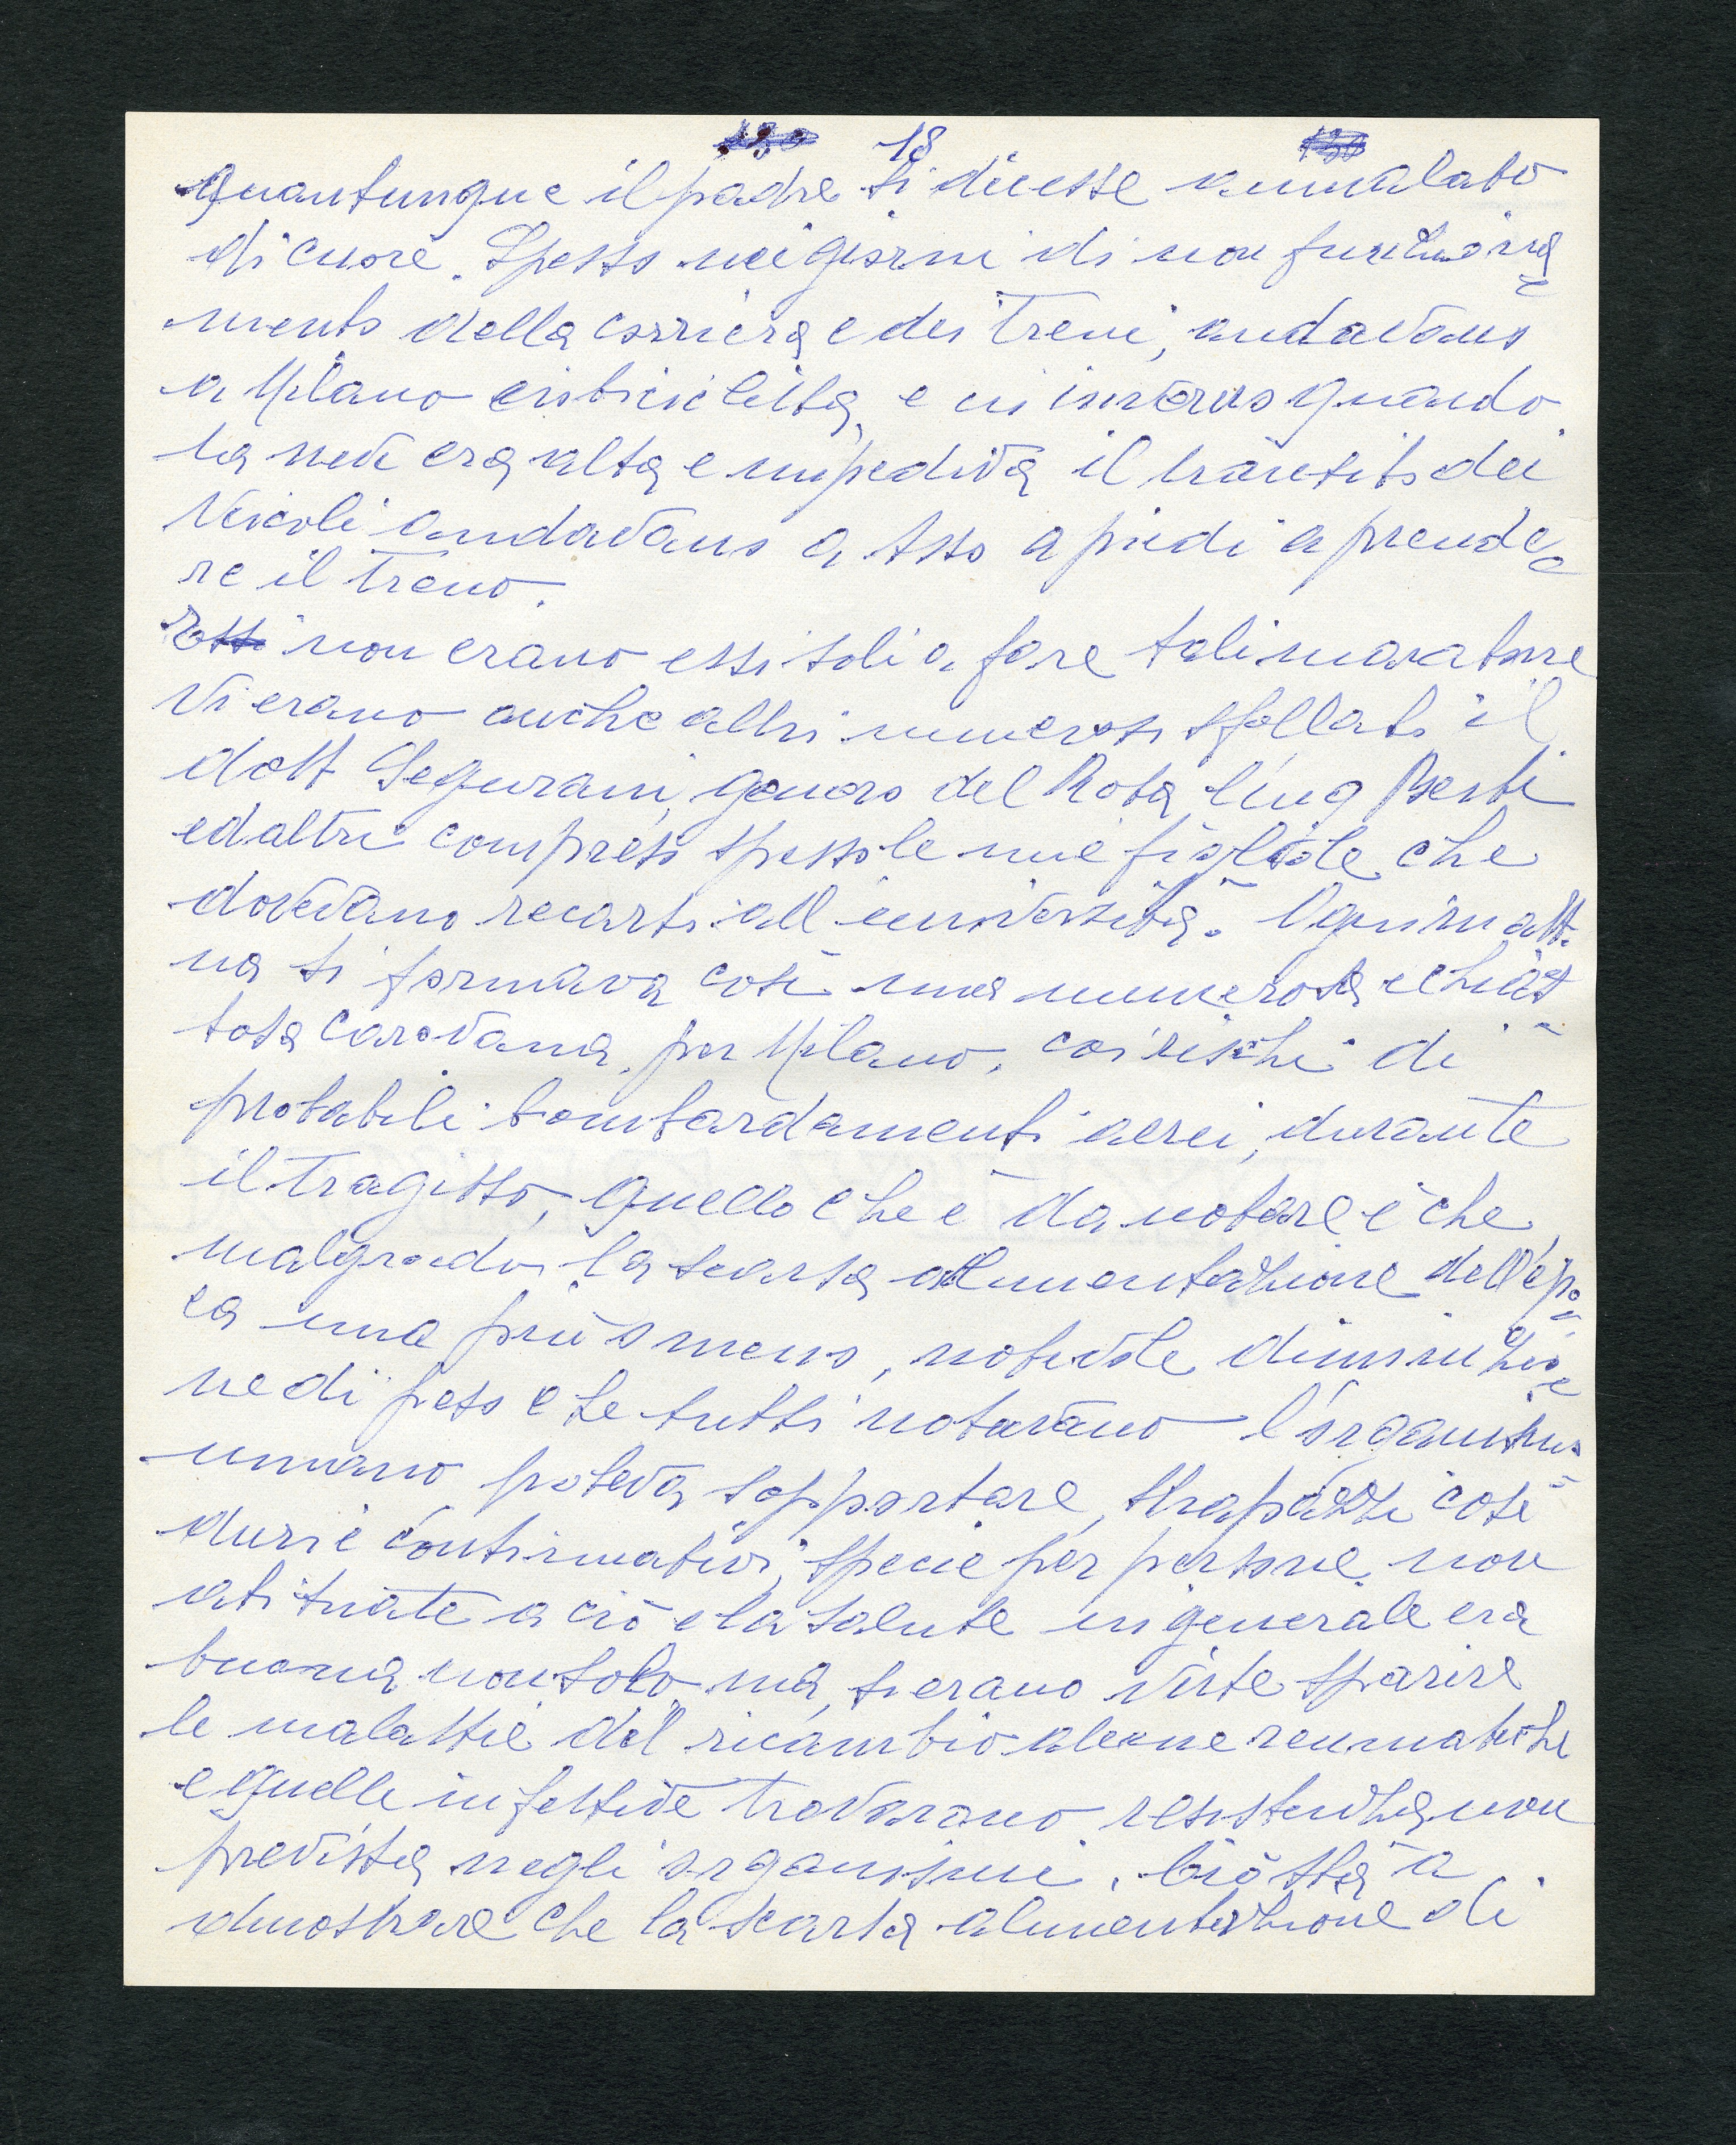 18
quantunque il padre si dicesse ammalato
di cuore. Spesso nei giorni di non funziona=
mento della corriera e dei treni, andavano
a Milano in bicicletta, e in inverno quando
la neve era alta e impediva il transito dei
veicoli andavano a Asso a piedi a prende=
re il treno.
non erano essi soli a fare tali maratone
Vi erano anche altri numerosi sfollati il
dott Segurani, genero del Rota, l'ing Berti
ed altri compreso spesso le mie figliole che
dovevano recarsi all'università. Ogni matt.
na si formava così una numerosa e chias=
sosa carovana, per Milano, coi rischi di
probabili bombardamenti aerei, durante
il tragitto, quello che è da notare è che
malgrado la scarsa alimentazione dell'epo=
ca una più o meno, notevole diminuzio=
ne di peso che tutti notavano l'organismo
umano poteva sopportare, strapazzi così
duri e continuativi, specie per persone non
abituate a ciò e la salute in generale era
buona non solo ma, si erano viste sparire
le malattie del ricambio alcune reumatiche
e quelle infettive trovarono resistenza non
prevista negli organismi. Ciò sta a
dimostrare che la scarsa alimentazione di